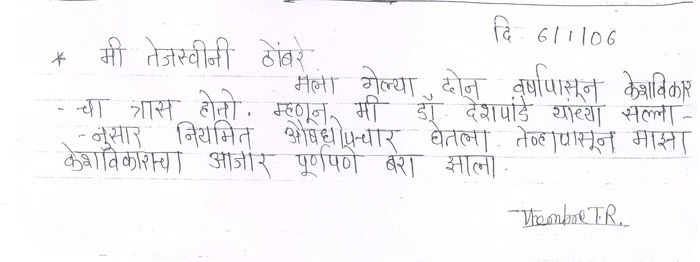 दि. 6/1/06
* मी तेजस्वीनी ठोंबरे
मला गेल्या दोन वर्षापासून केशविकार
- चा त्रास होतो. म्हणून मी डॉ. देशपांडे यांच्या सल्ला -
- नुसार नियमित औषधोपचार घेतला. तेव्हापासून माझा
केशविकाराचा आजार पूर्णपणे बरा झाला.
Thombre T.R.